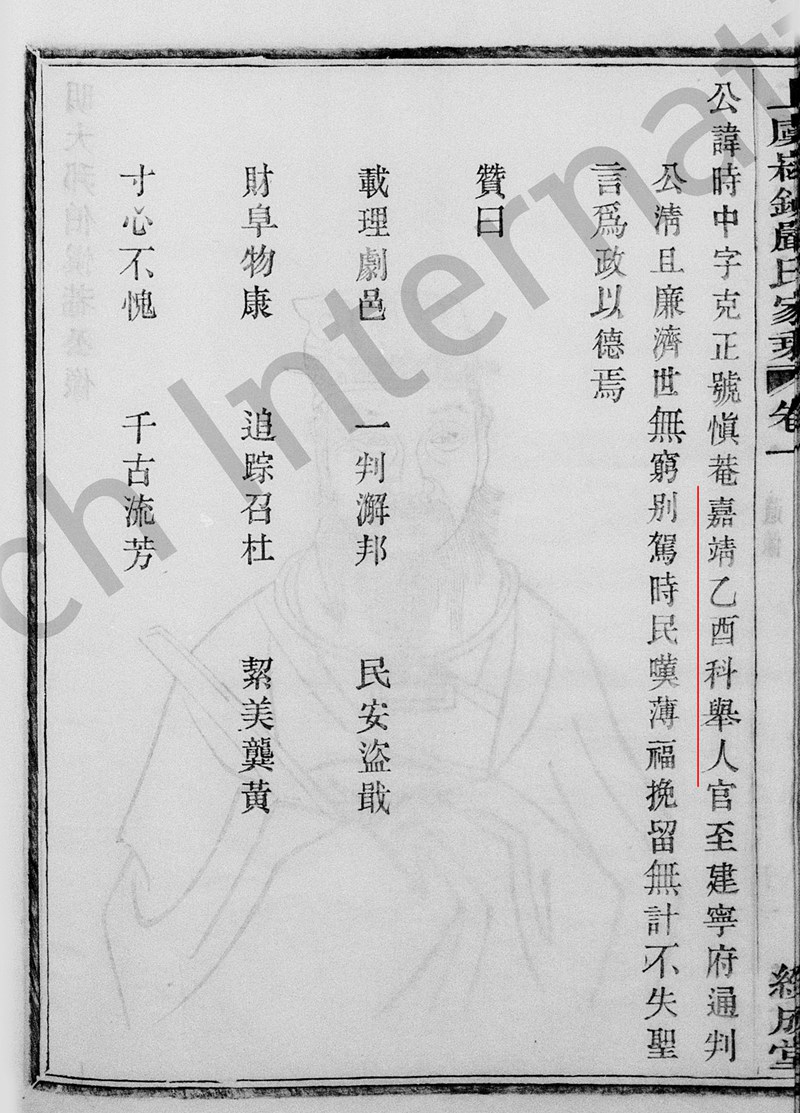 嚴氏家乘 卷一
公諱時中字克正號愼菴嘉靖乙酉科舉人官至建寧府通判
公淸且廉濟世無窮别駕時民嘆薄福挽留無計不失聖
言爲政以德焉
贊曰
載理劇邑 一判澥邦 民安盜戢
財阜物康 追踪召杜 絜美龔黄
寸心不愧 千古流芳
ch Internat